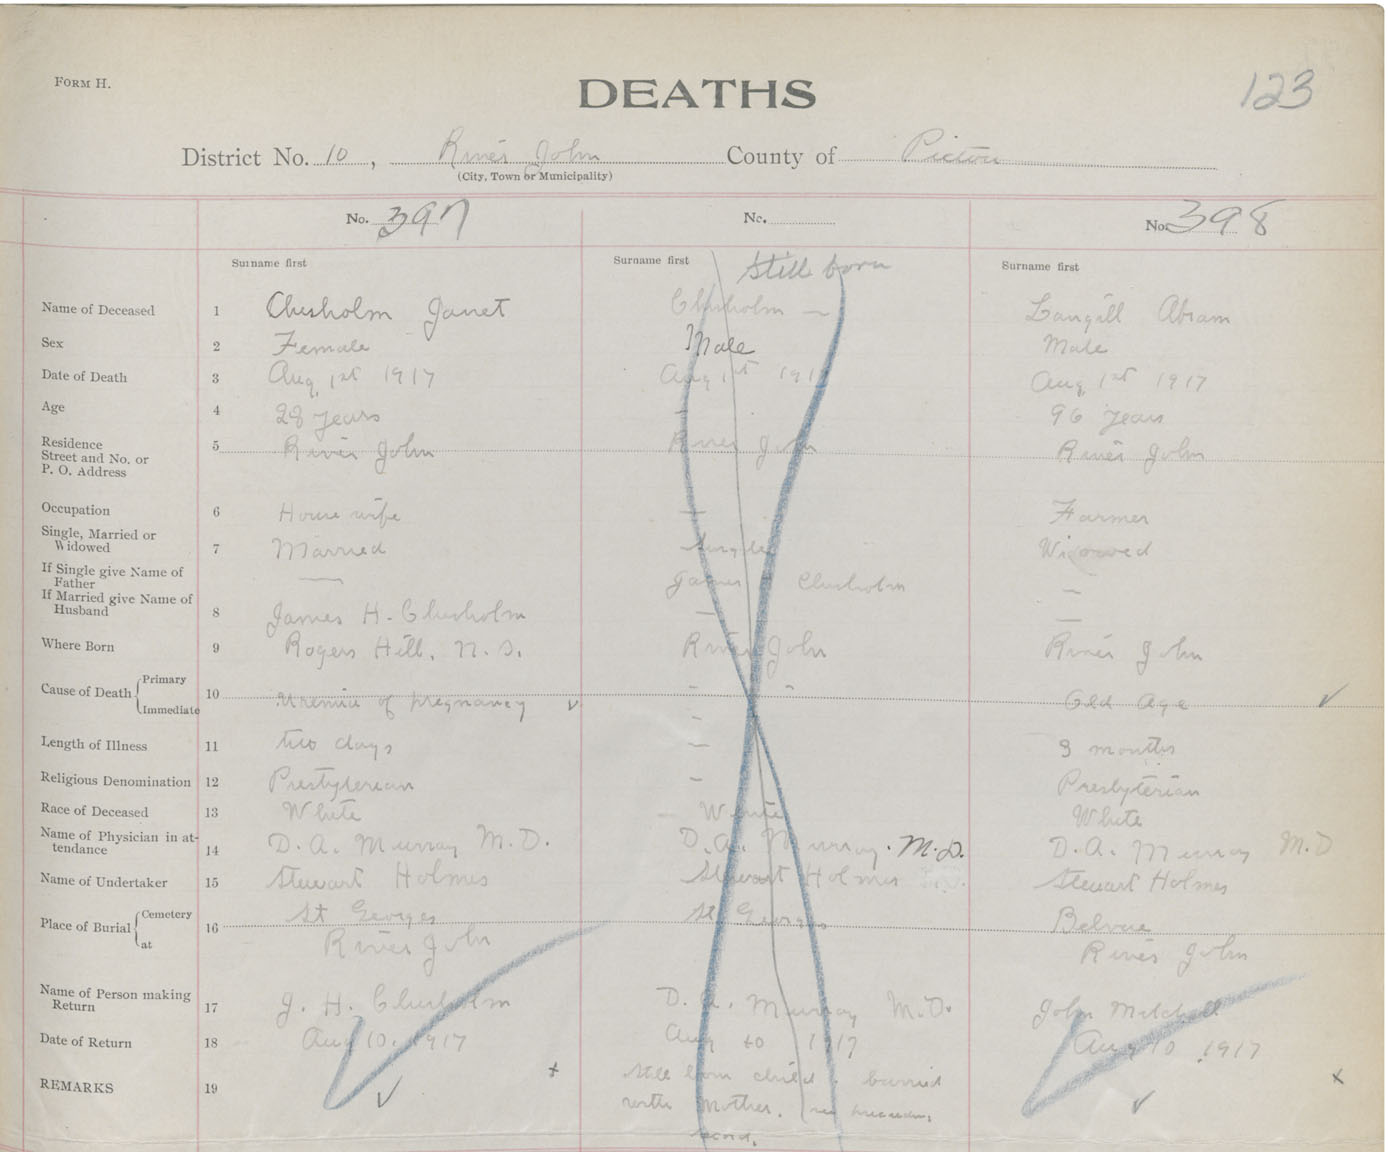 FORM H.
DEATHS
123
District No. 10, River John County of Pictou
(City, Town or Municipality)
No. 397
No.
No. 398
Surname first
Surname first
Still born
Surname first
Name of Deceased 1 Chisholm Janet Chisholm — Langill Abram
Sex 2 Female Male Male
Date of Death 3 Aug 1st 1917 Aug 1st 1917 Aug 1st 1917
Age 4 28 years - 96 years
Residence
Street and No. or
P. O. Address
5 River John River John River John
Occupation 6 House wife — Farmer
Single, Married or
Widowed
7 Married Single Widowed
If Single give Name of
Father
— James H Chisholm —
If Married give Name of
Husband
8 James H. Chisholm — —
Where Born 9 Rogers Hill, N.S. River John River John
Cause of Death Primary
Immediate
10 Uremia of pregnancy - - - Old Age
Length of Illness 11 two days — 3 months
Religious Denomination 12 Presbyterian - Presbyterian
Race of Deceased 13 White White White
Name of Physician in at-
tendance
14 D. A. Murray M.D. D. A. Murray. M.D. D. A. Murray M.D
Name of Undertaker 15 Stewart Holmes Stewart Holmes Stewart Holmes
Place of Burial Cemetery
at
16 St Georges St Georges Belvue
River John River John
Name of Person making
Return
17 J. H. Chisholm D. A. Murray M.D. John Mitchell
Date of Return 18 Aug 10, 1917 Aug 10 1917 Aug 10 1917
REMARKS 19 still born child. burried
with Mother. see preceeding
record.